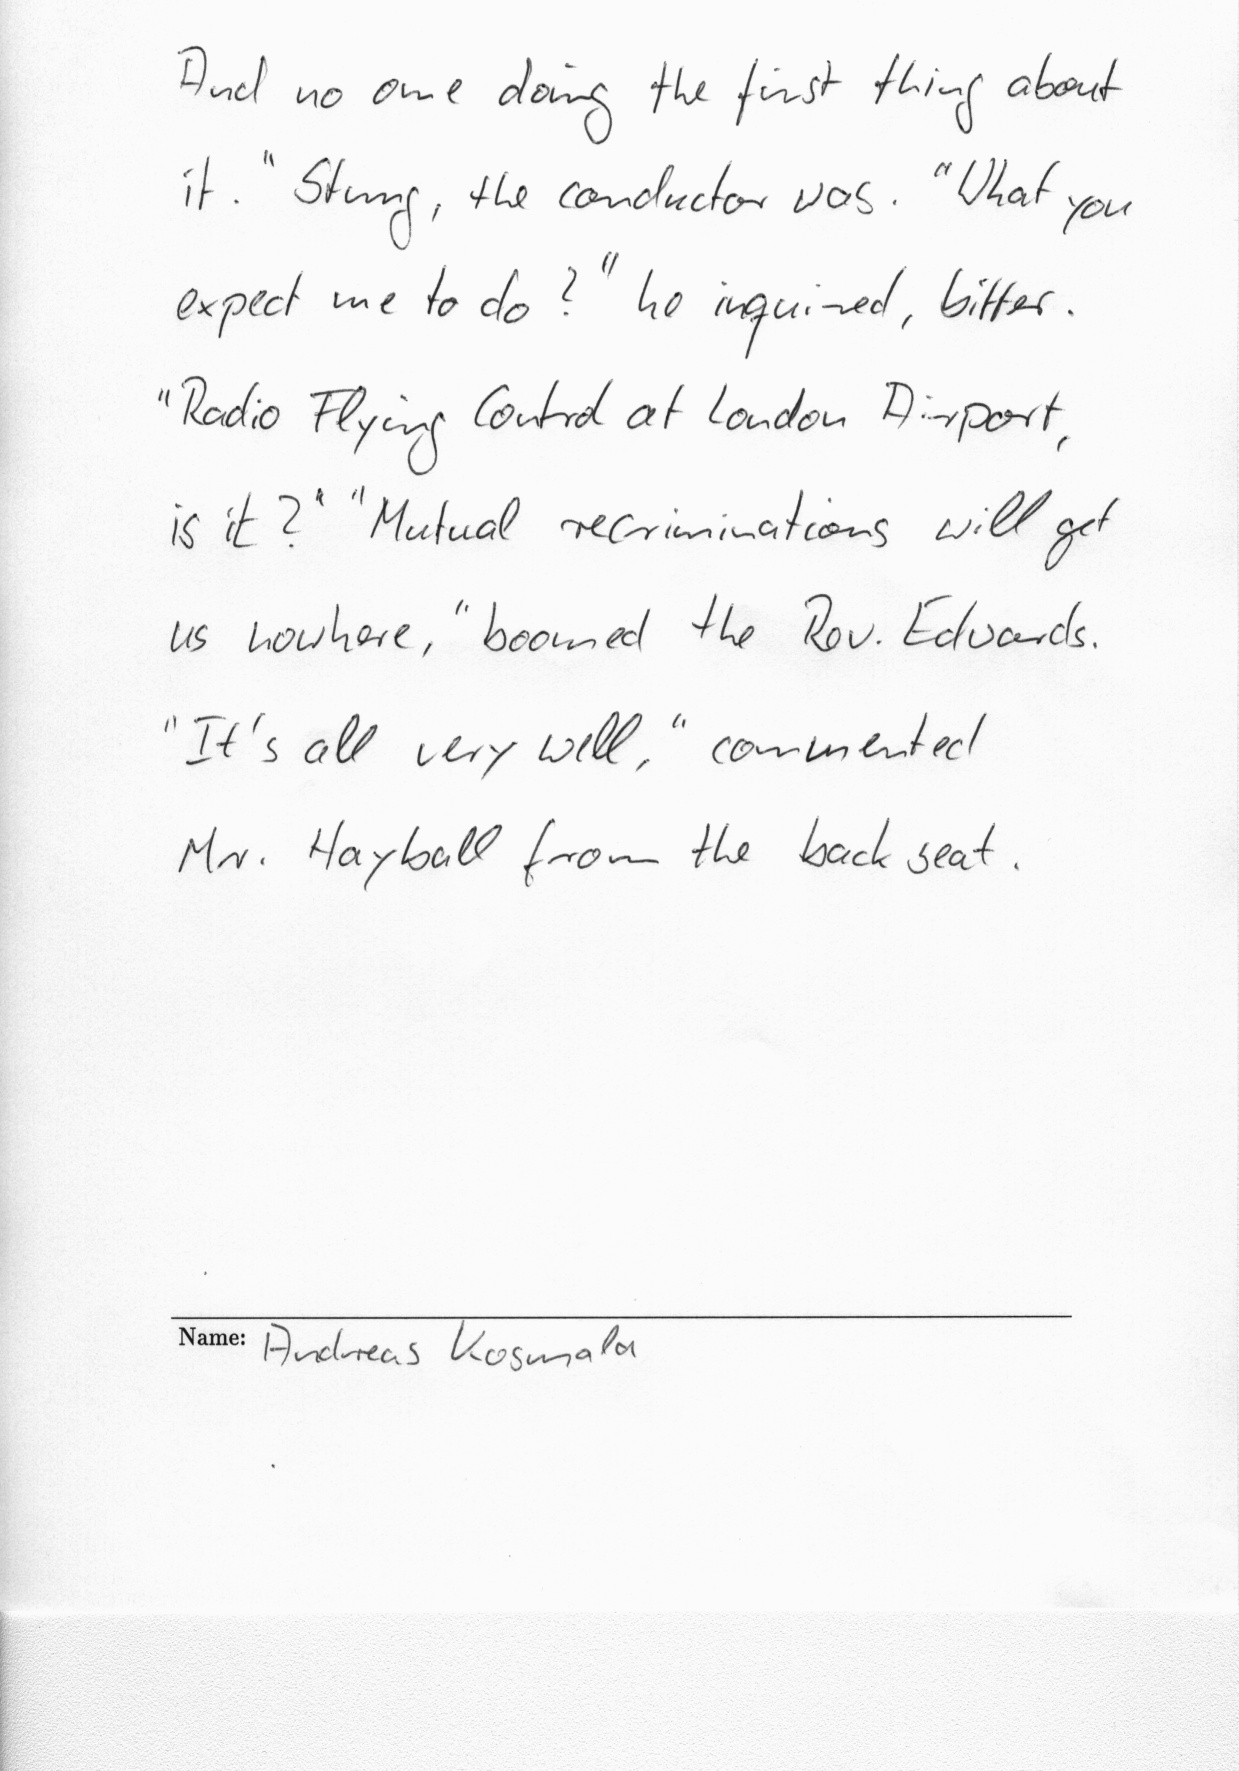 And no one doing the first thing about
it." Stung, the conductor was. "What you
expect me to do?" he inquired, bitter.
"Radio Flying Control at London Airport,
is it?" "Mutual recriminations will get
us nowhere," boomed the Rev. Edwards.
"It's all very well," commented
Mr. Hayball from the back seat.
Name: Andreas Kosmala